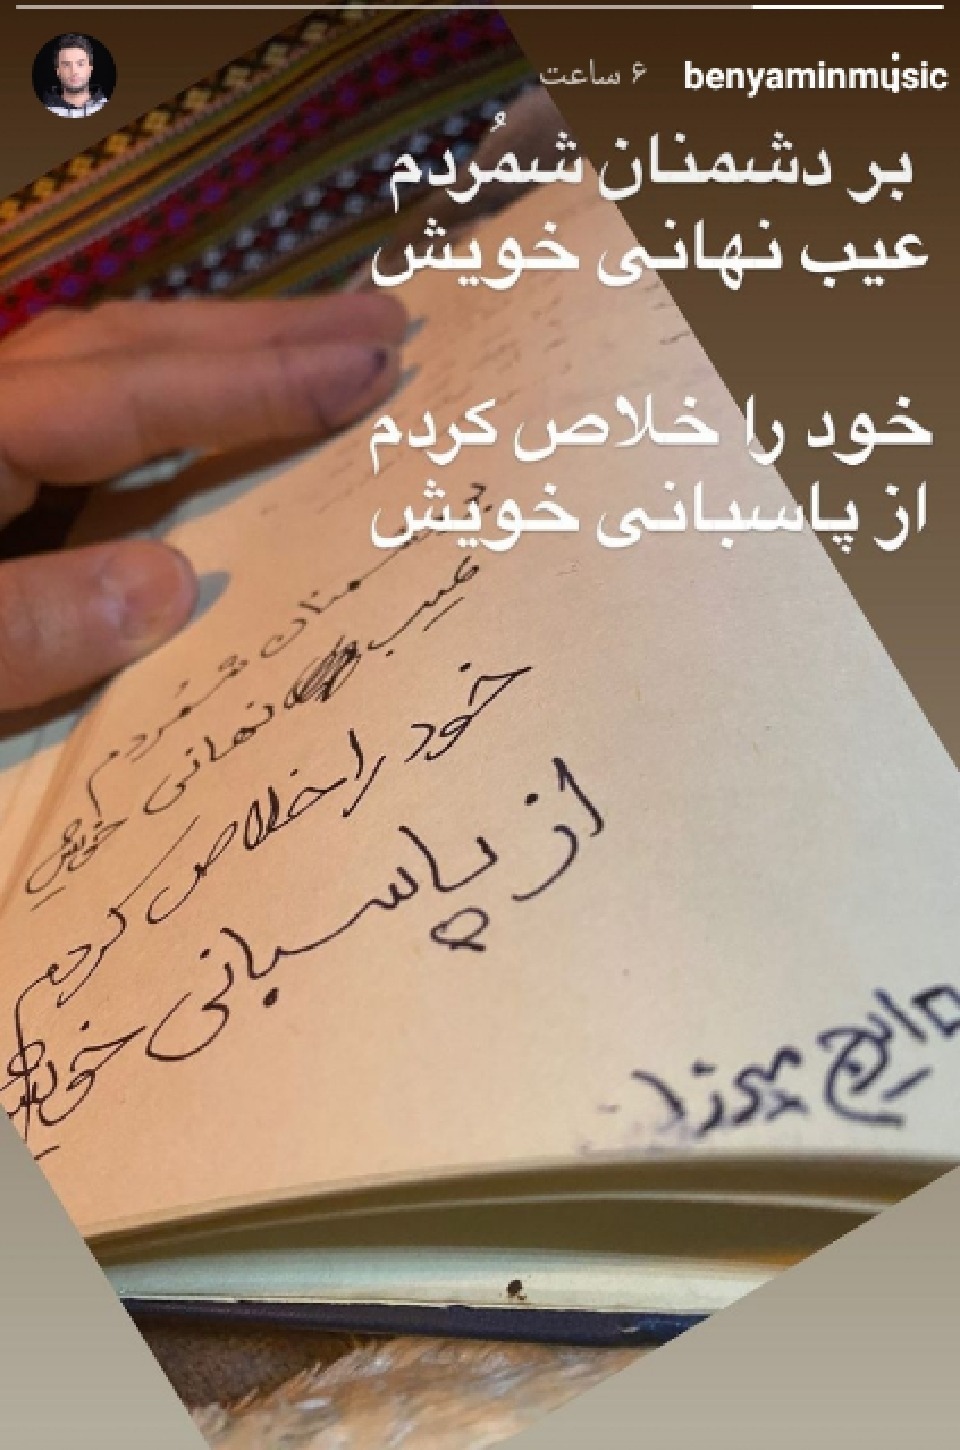 benyaminmusic ۶ ساعت
بر دشمنان شمُردم
عیب نهانی خویش
خود را خلاص کردم
از پاسبانی خویش
دشمنان شمُردم
عیب نهانی خویش
خود را خلاص کردم
از پاسبانی خویش
ایرج